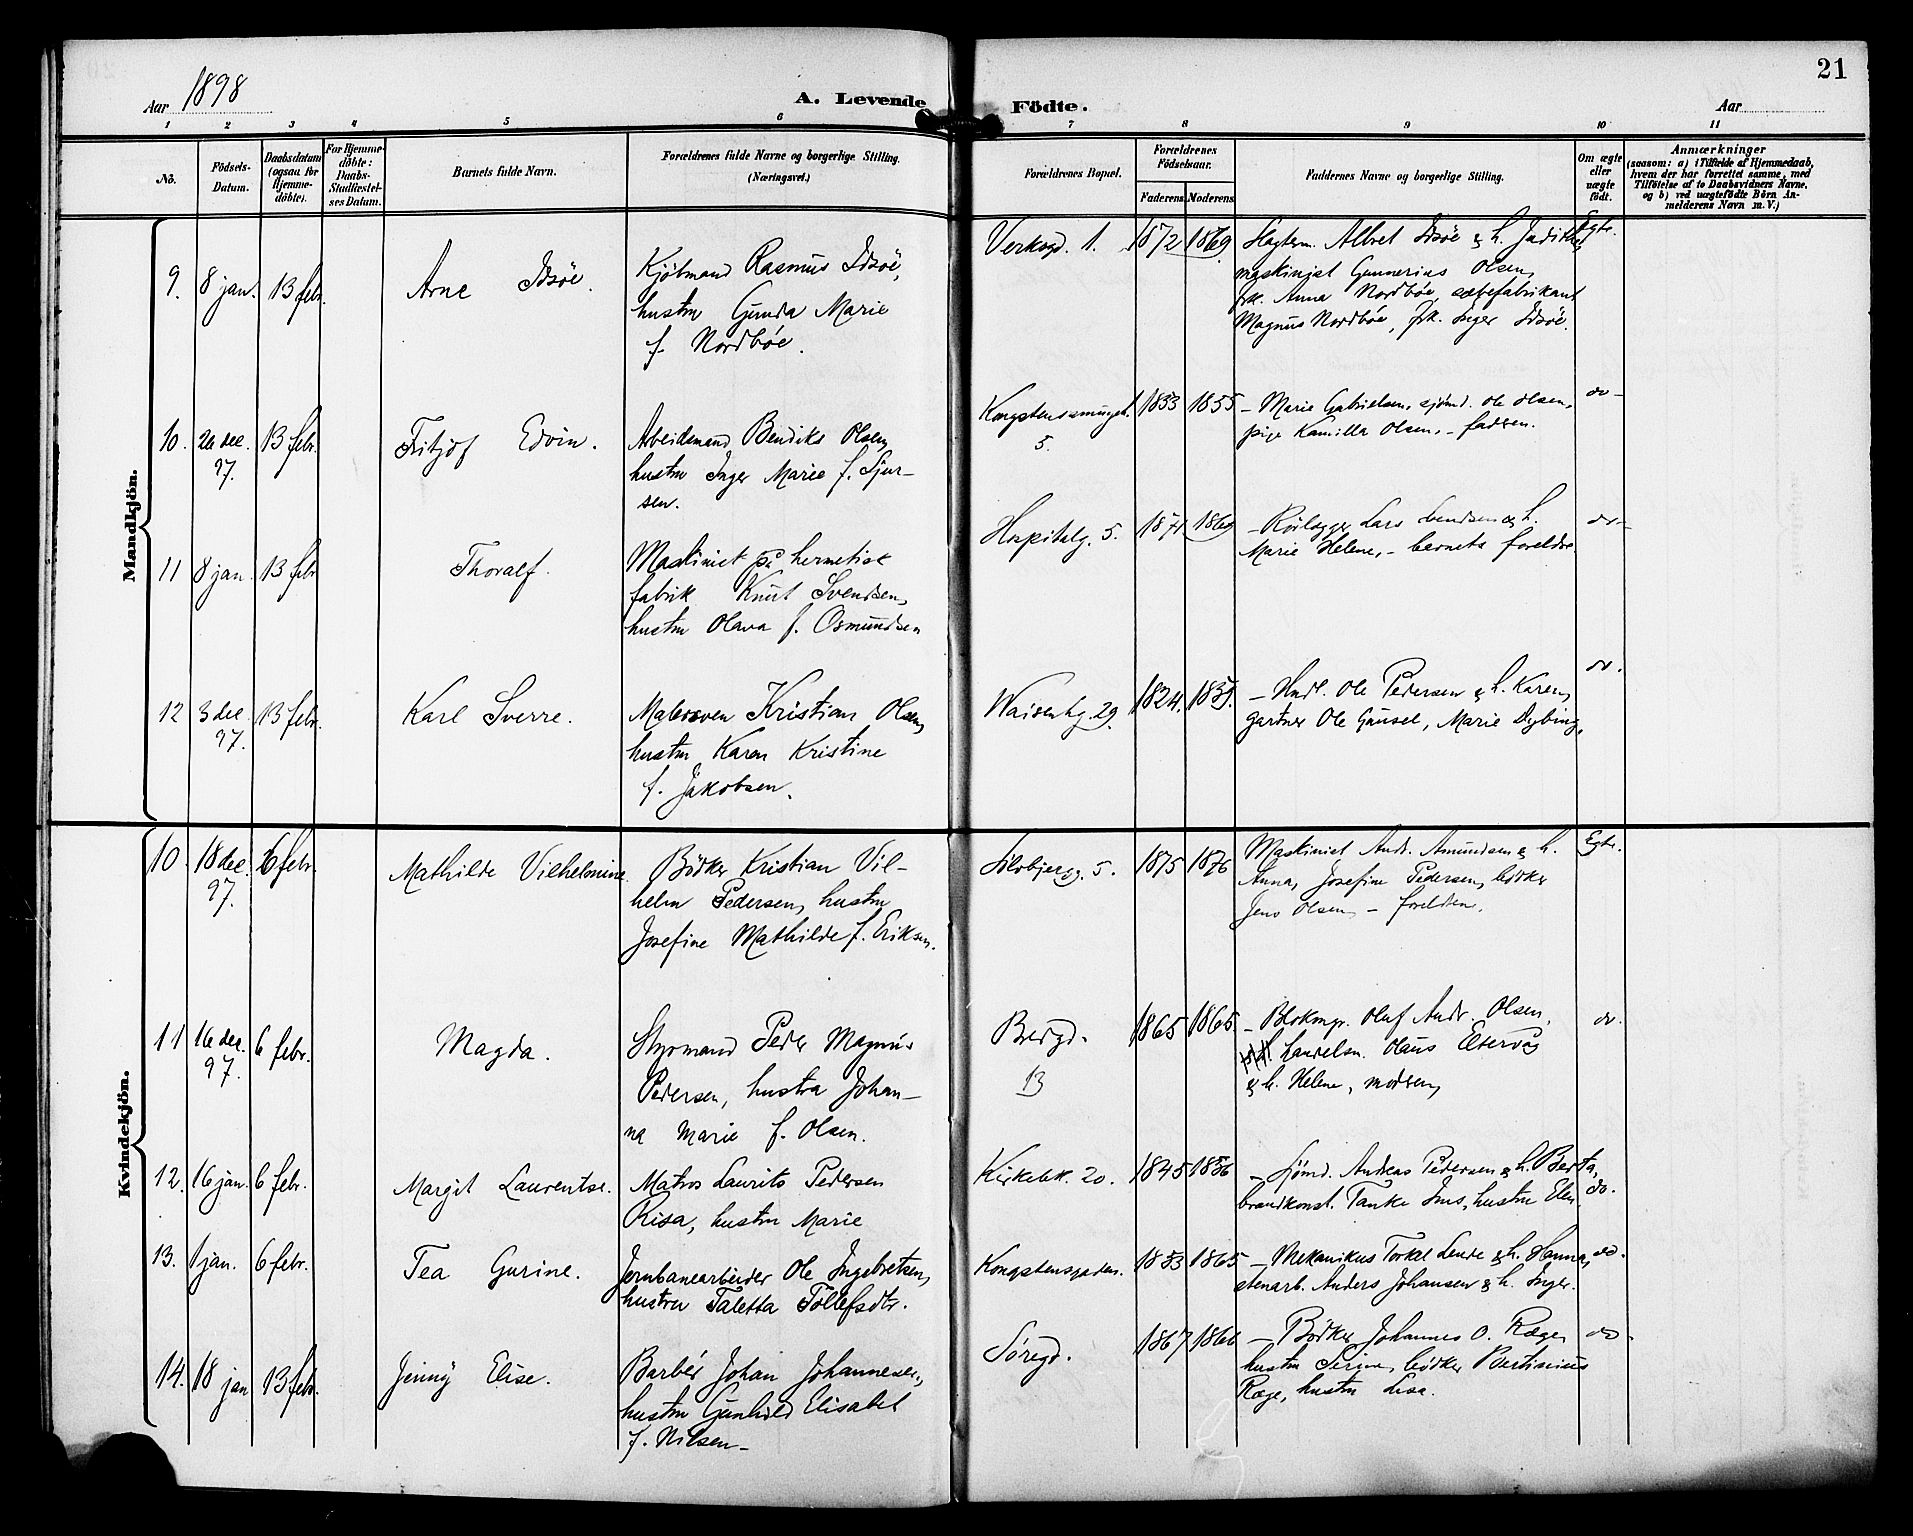 21
Aar 1898
A. Levende Födte.
Aar
1 2 3 4 5 6 7 8 9 10 11
No.
Födsels-
Datum.
Daabsdatum
(ogsaa for
Hjemme-
döbte).
For Hjemme-
döbte:
Daabs-
Stadfæstel-
ses Datum.
Barnets fulde Navn.
Forældrenes fulde Navne og borgerlige Stilling.
(Næringsvei.)
Forældrenes Bopæl.
Forældrenes
Födselsaar.
Faderens Moderens
Faddernes Navne og borgerlige Stilling.
Om ægte
eller
uægte
født.
Anmærkninger
(saasom: a) i Tilfælde af Hjemmedaab,
hvem der har forrettet samme, med
Tilföielse af to Daabsvidners Navne,
og b) ved uægtefödte Börn An-
melderens Navn m. V.)
Mandkjön.
9. 8 jan. 13 febr. Arne Idsöe.
Kjöbmand Rasmus Idsöe,
hustru Gunda Marie
f. Nordböe.
Verksgd. 1. 1872 1869.
Albret Idsöe & h. Judithe,
maskinist Gunnerius Olsen,
frk. Anna Nordböe, sæbefabrikant
Magnus Nordböe, frk. Inger Idsöe.
Egte.
10. 26 dec. 97. 13 febr. Fritjof Edvin.
Arbeidsmand Bendiks Olsen,
hustru Inger Marie f. Sjur-
sen.
5. 1853 1855
- Marie Gabrielsen, sjömd. Ole Olsen,
pige Kamilla Olsen, - fadren.
do -
11 8 jan. 13 febr. Thoralf.
Maskinist på hermetisk
fabrik Knut Svendsen,
hustru Olava f. Osmundsen
Hospitalg. 5. 1871 1869
- Rörlægger Lars Svendsen & h.
Marie Helene, - barnets foreldre
do -
12 3 dec. 97. 13 febr. Karl Sverre.
Malersven Kristian Olsen,
hustru Karen Kristine
f. Jakobsen.
Waisenhg. 29.
- Hndl. Ole Pedersen & h. Karen,
gartner Ole Gausel, Marie Dybing,
do.
Kvindekjön.
10. 18 dec. 97. 6 febr. Mathilde Vilhelmine.
Bödker Kristian Vil-
helm Pedersen, hustru
Josefine Mathilde f. Eriksen.
5. 1875 1876
Maskinist Andr. Amundsen & h.
Anna, Josefine Pedersen, bödker
Jens Olsen, - foreldrene.
Egte.
11 16 dec. 97. 6 febr. Magda.
Styrmand Peder Magnus
Pedersen, hustru Johan-
na Marie f. Olsen.
Bergd.
13
1865 1865
Oluf Andr. Olsen,
handelsm. Olaus
& h. Helene, modren,
do.
12. 16 jan. 6 febr. Margit Laurentse.
Matros Laurits Pedersen
Risa, hustru Marie
Kirkebk. 20. 1845 1856
- Sjömd. Andreas Pedersen & h. Berta,
brandkonst. Tanke Ims, hustru Elen.
do.
13. 1 jan. 6 febr. Tea Gurine.
Jernbanearbeider Ole Ingebretsen,
hustru Taletta Töllefsdtr.
Kongstensgaden. 1853 1865
- Mekanikus Torkel Lende & h. Hanna,
stenarb. Anders Johansen & h. Inger.
do.
14. 18 jan 13 febr. Jenny Elise.
Barbér Johan Johannesen,
hustru Gunhild Elisabet
f. Nilsen -
Söregd. 1867 1866
- Bödker Johannes O. Ræge,
hustru Serine, bödker Bertinius
Ræge, hustru Lisa.
do -